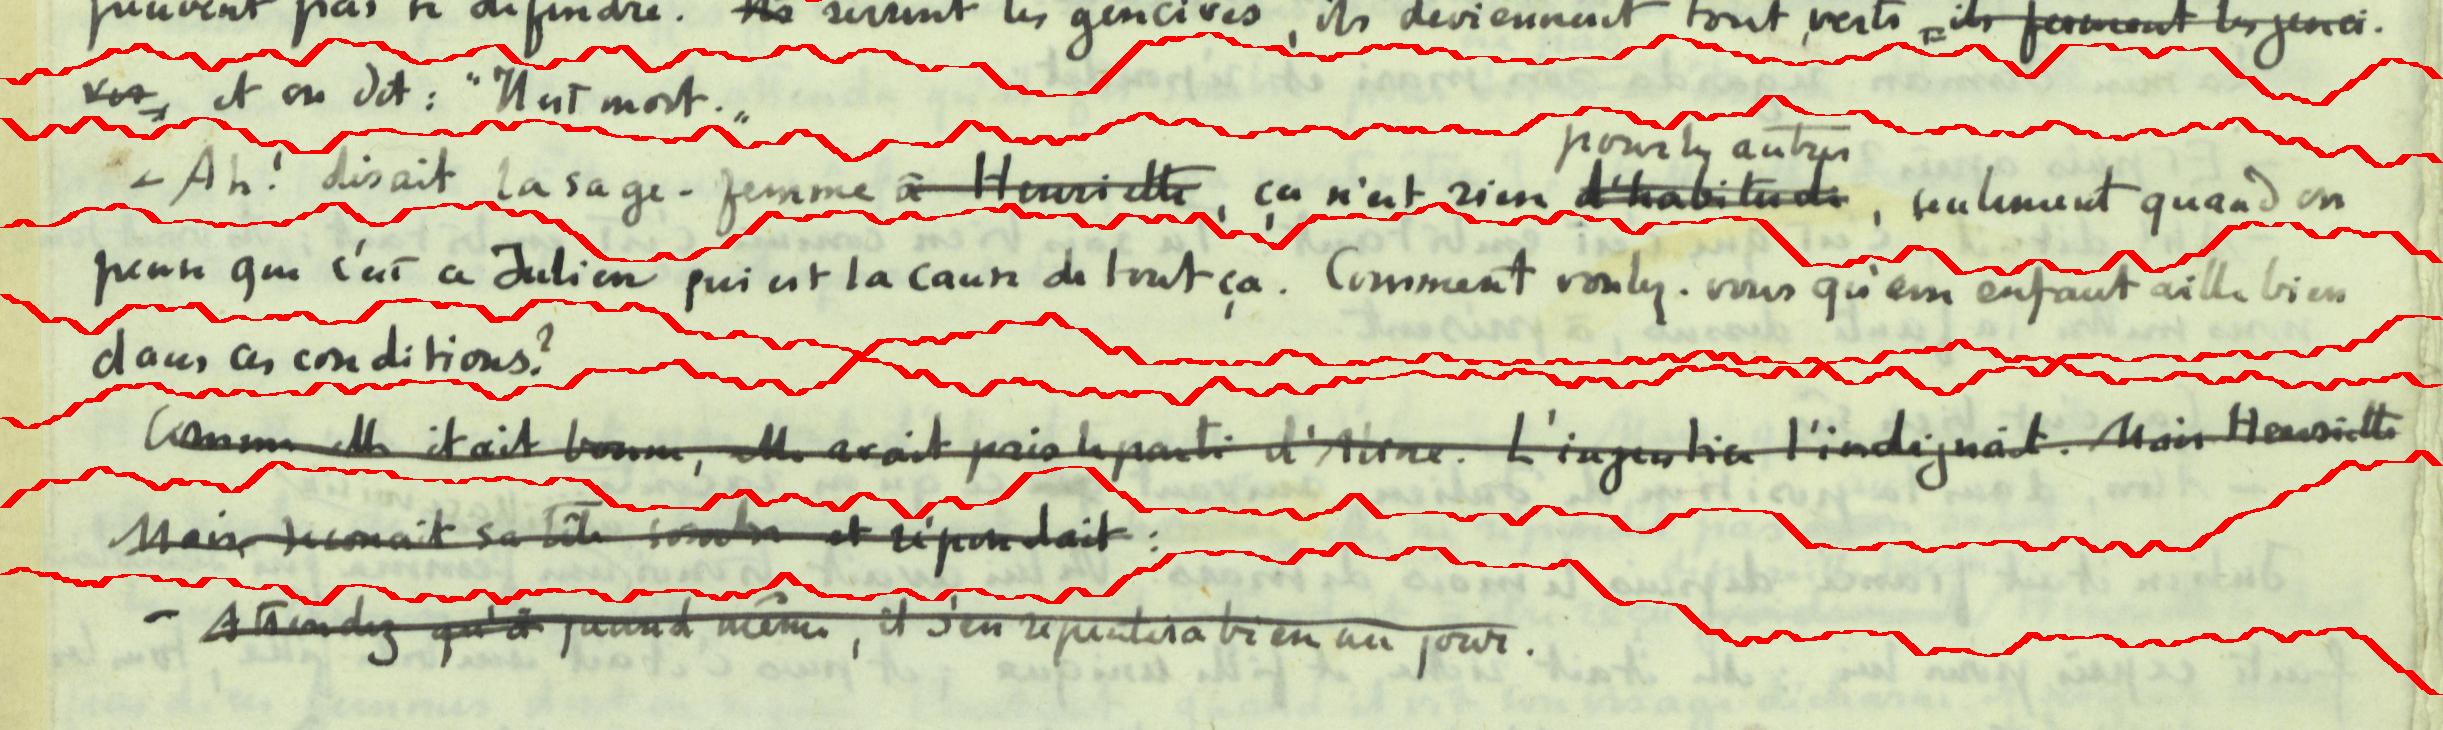 peuvent pas se défendre. Ils serrent les gencives, ils deviennent tout verts = ils ferment les genci-
ves, et on dit : "Il est mort."
- Ah ! disait la sage-femme à Henriette, ça n'est rien d'habitude, seulement quand on
pour les autres
pense que c'est ce Julien qui est la cause de tout ça. Comment voulez-vous qu'un enfant aille bien
dans ces conditions?
Comme elle était bonne, elle avait pris le parti d'Aline. L'injustice l'indignait. Mais Henriette
Mais secouait sa tête sombre et répondait :
- Attendez qu'il quand même, il s'en repentira bien un jour.